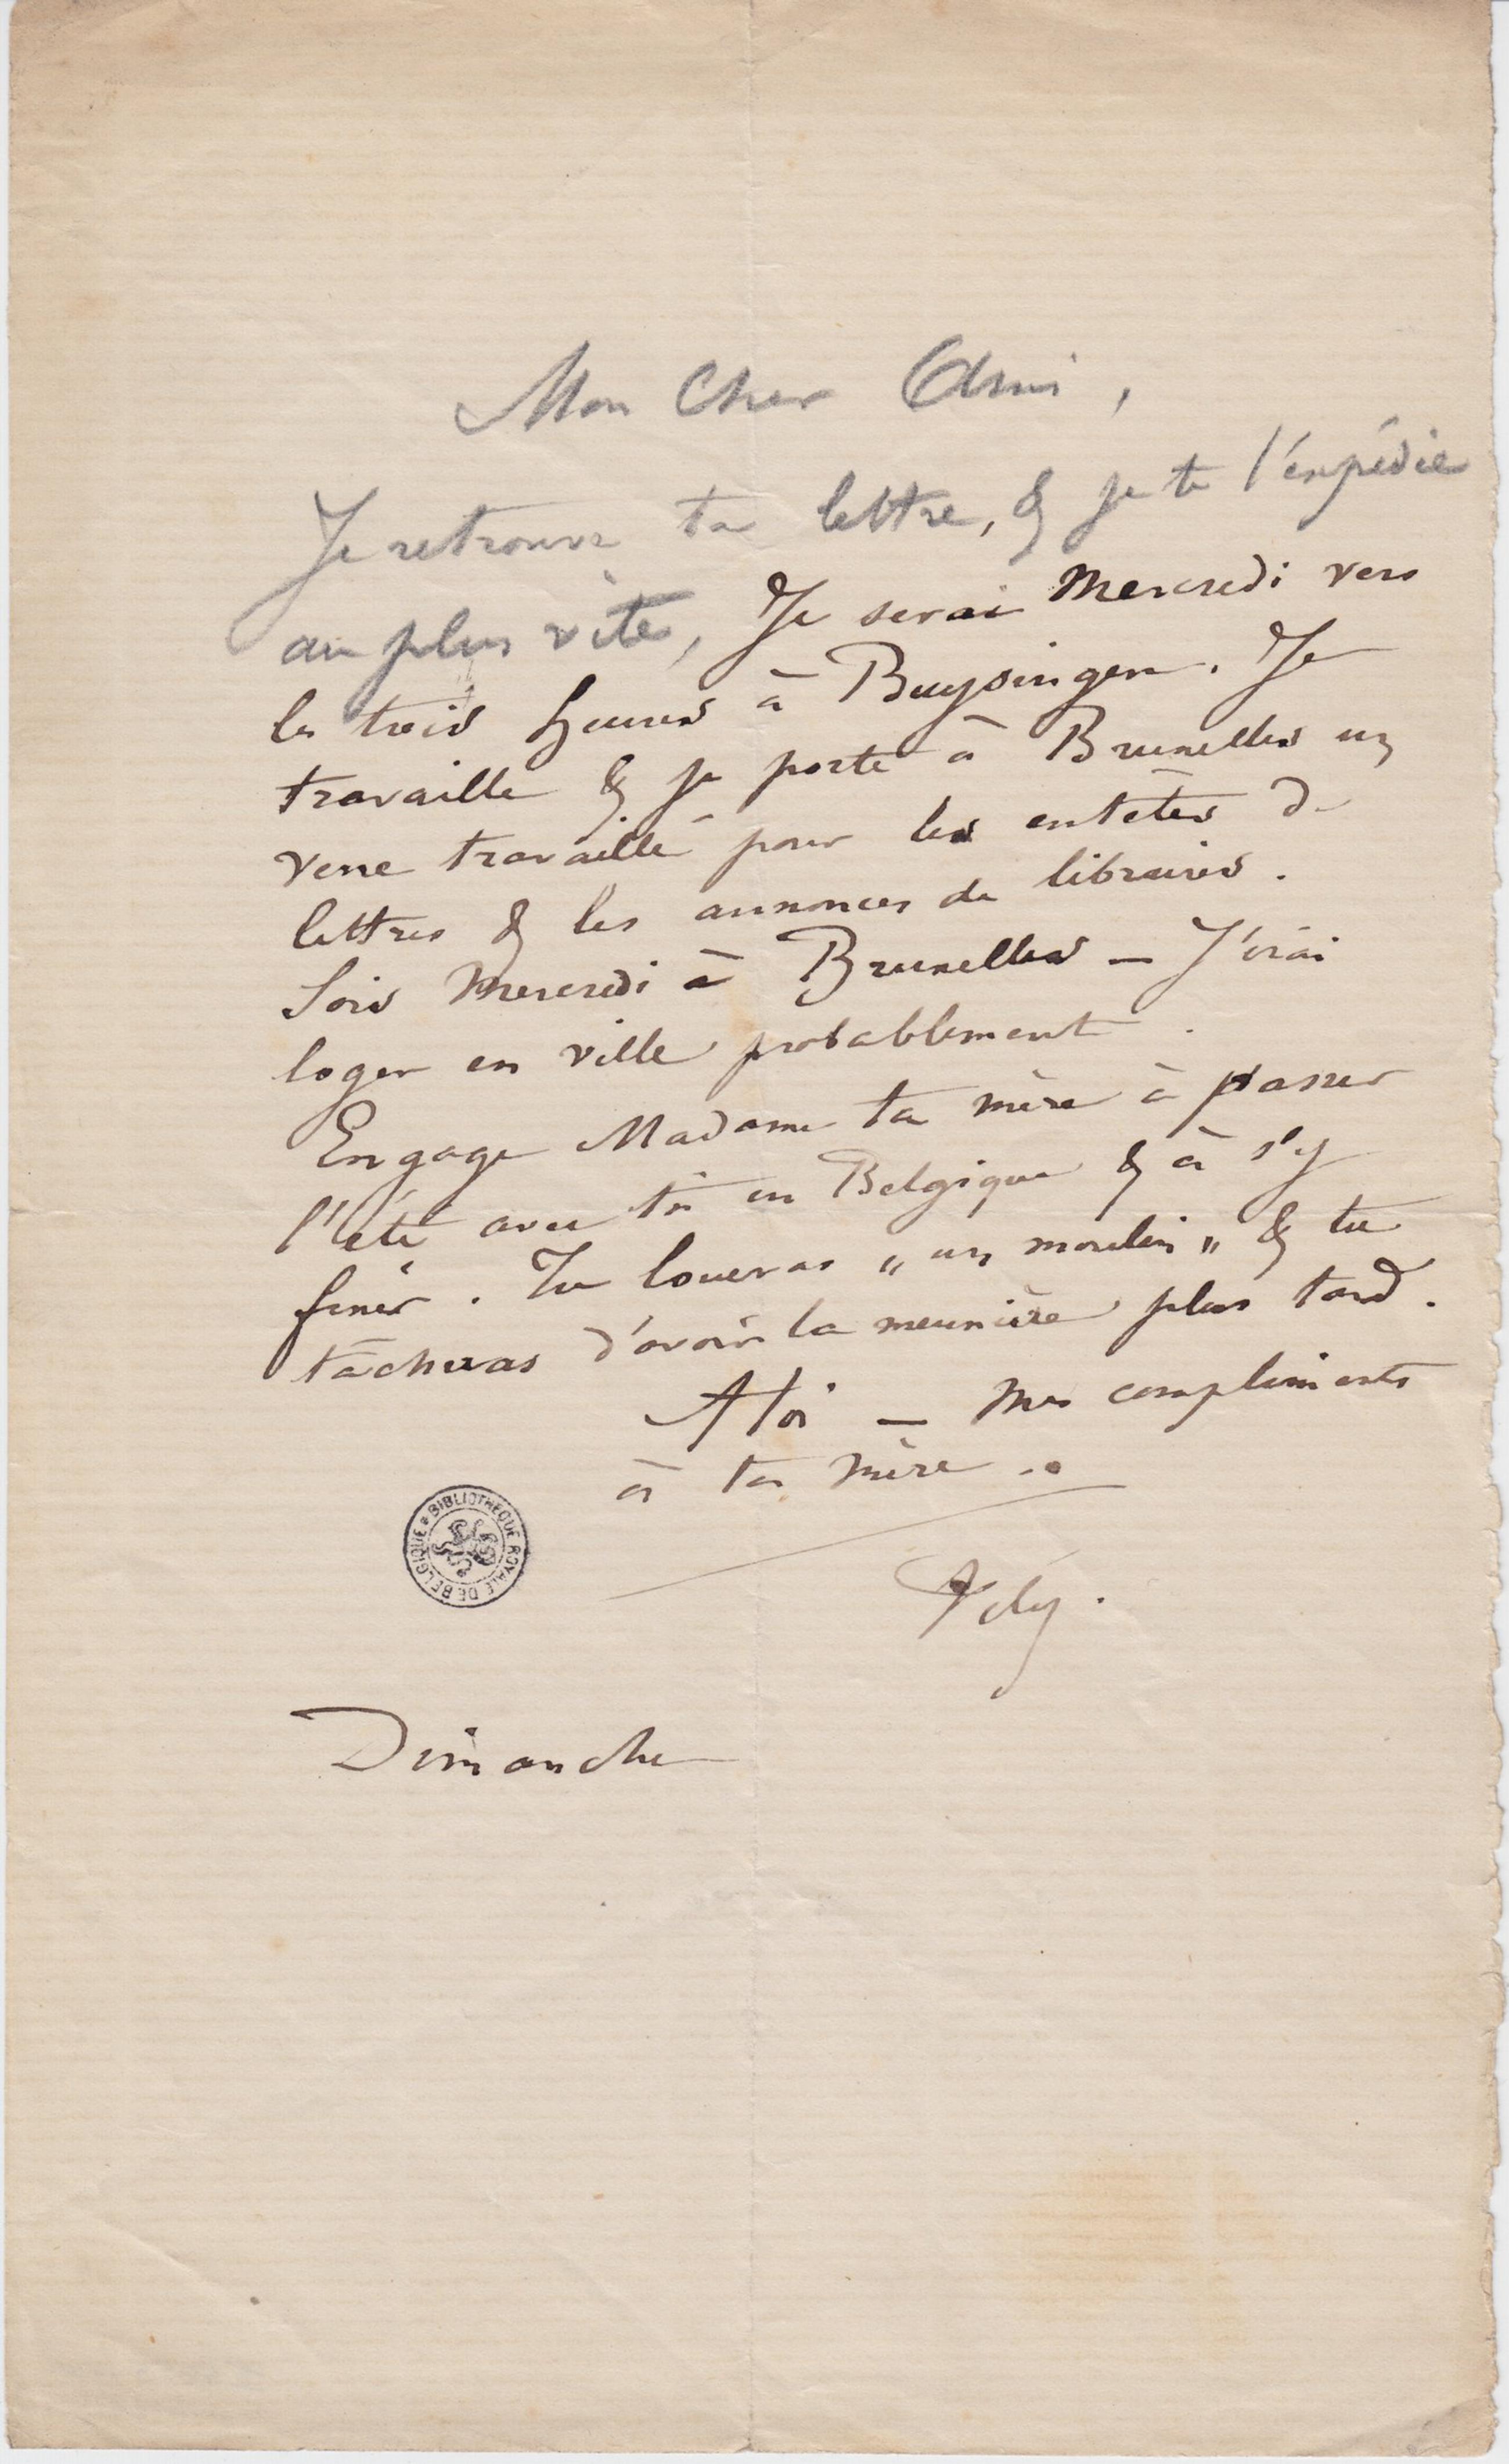 Mon Cher Ami,
Je retrouve ta lettre, & je te l'expédie
au plus vite, Je serai Mercredi vers
les trois heures à Buysingen. Je
travaille & je porte à Bruxelles un
verre travaillé pour les entêtes de
lettres & les annonces de libraires.
Sois Mercredi à Bruxelles – J'irai
loger en ville probablement.
Engage Madame ta mère à passer
l'été avec toi en Belgique & à s'y
fixer. Tu loueras „un moulin" & tu
tâcheras d'avoir la meunière plus tard.
A toi – Mes compliments
à ta mère ..
Fély.
Dimanche
BIBLIOTHEQUE ROYALE DE BELGIQUE